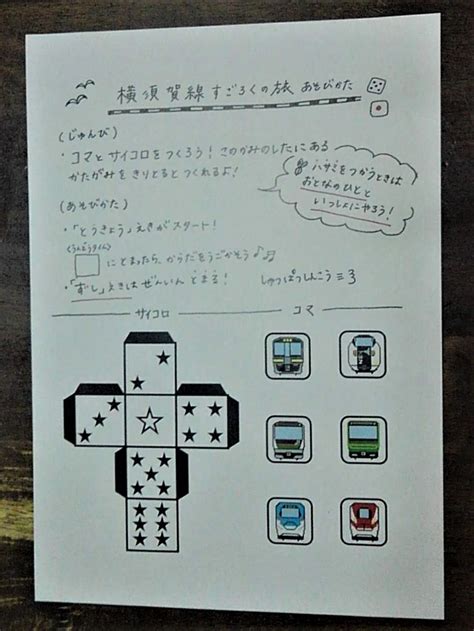 横須賀線すごろくの旅 あそびかた
(じゅんび)
・コマとサイコロをつくろう！このかみのしたにある
かたがみをきりとるとつくれるよ！
ハサミをつかうときは
おとなのひとと
いっしょにやろう！
(あそびかた)
・「とうきょう」えきがスタート！
〈うんどうタイム〉
□にとまったら、からだをうごかそう♪♫
・「ずし」えきはぜんいんとまる！
しゅっぱつしんこう
サイコロ
コマ